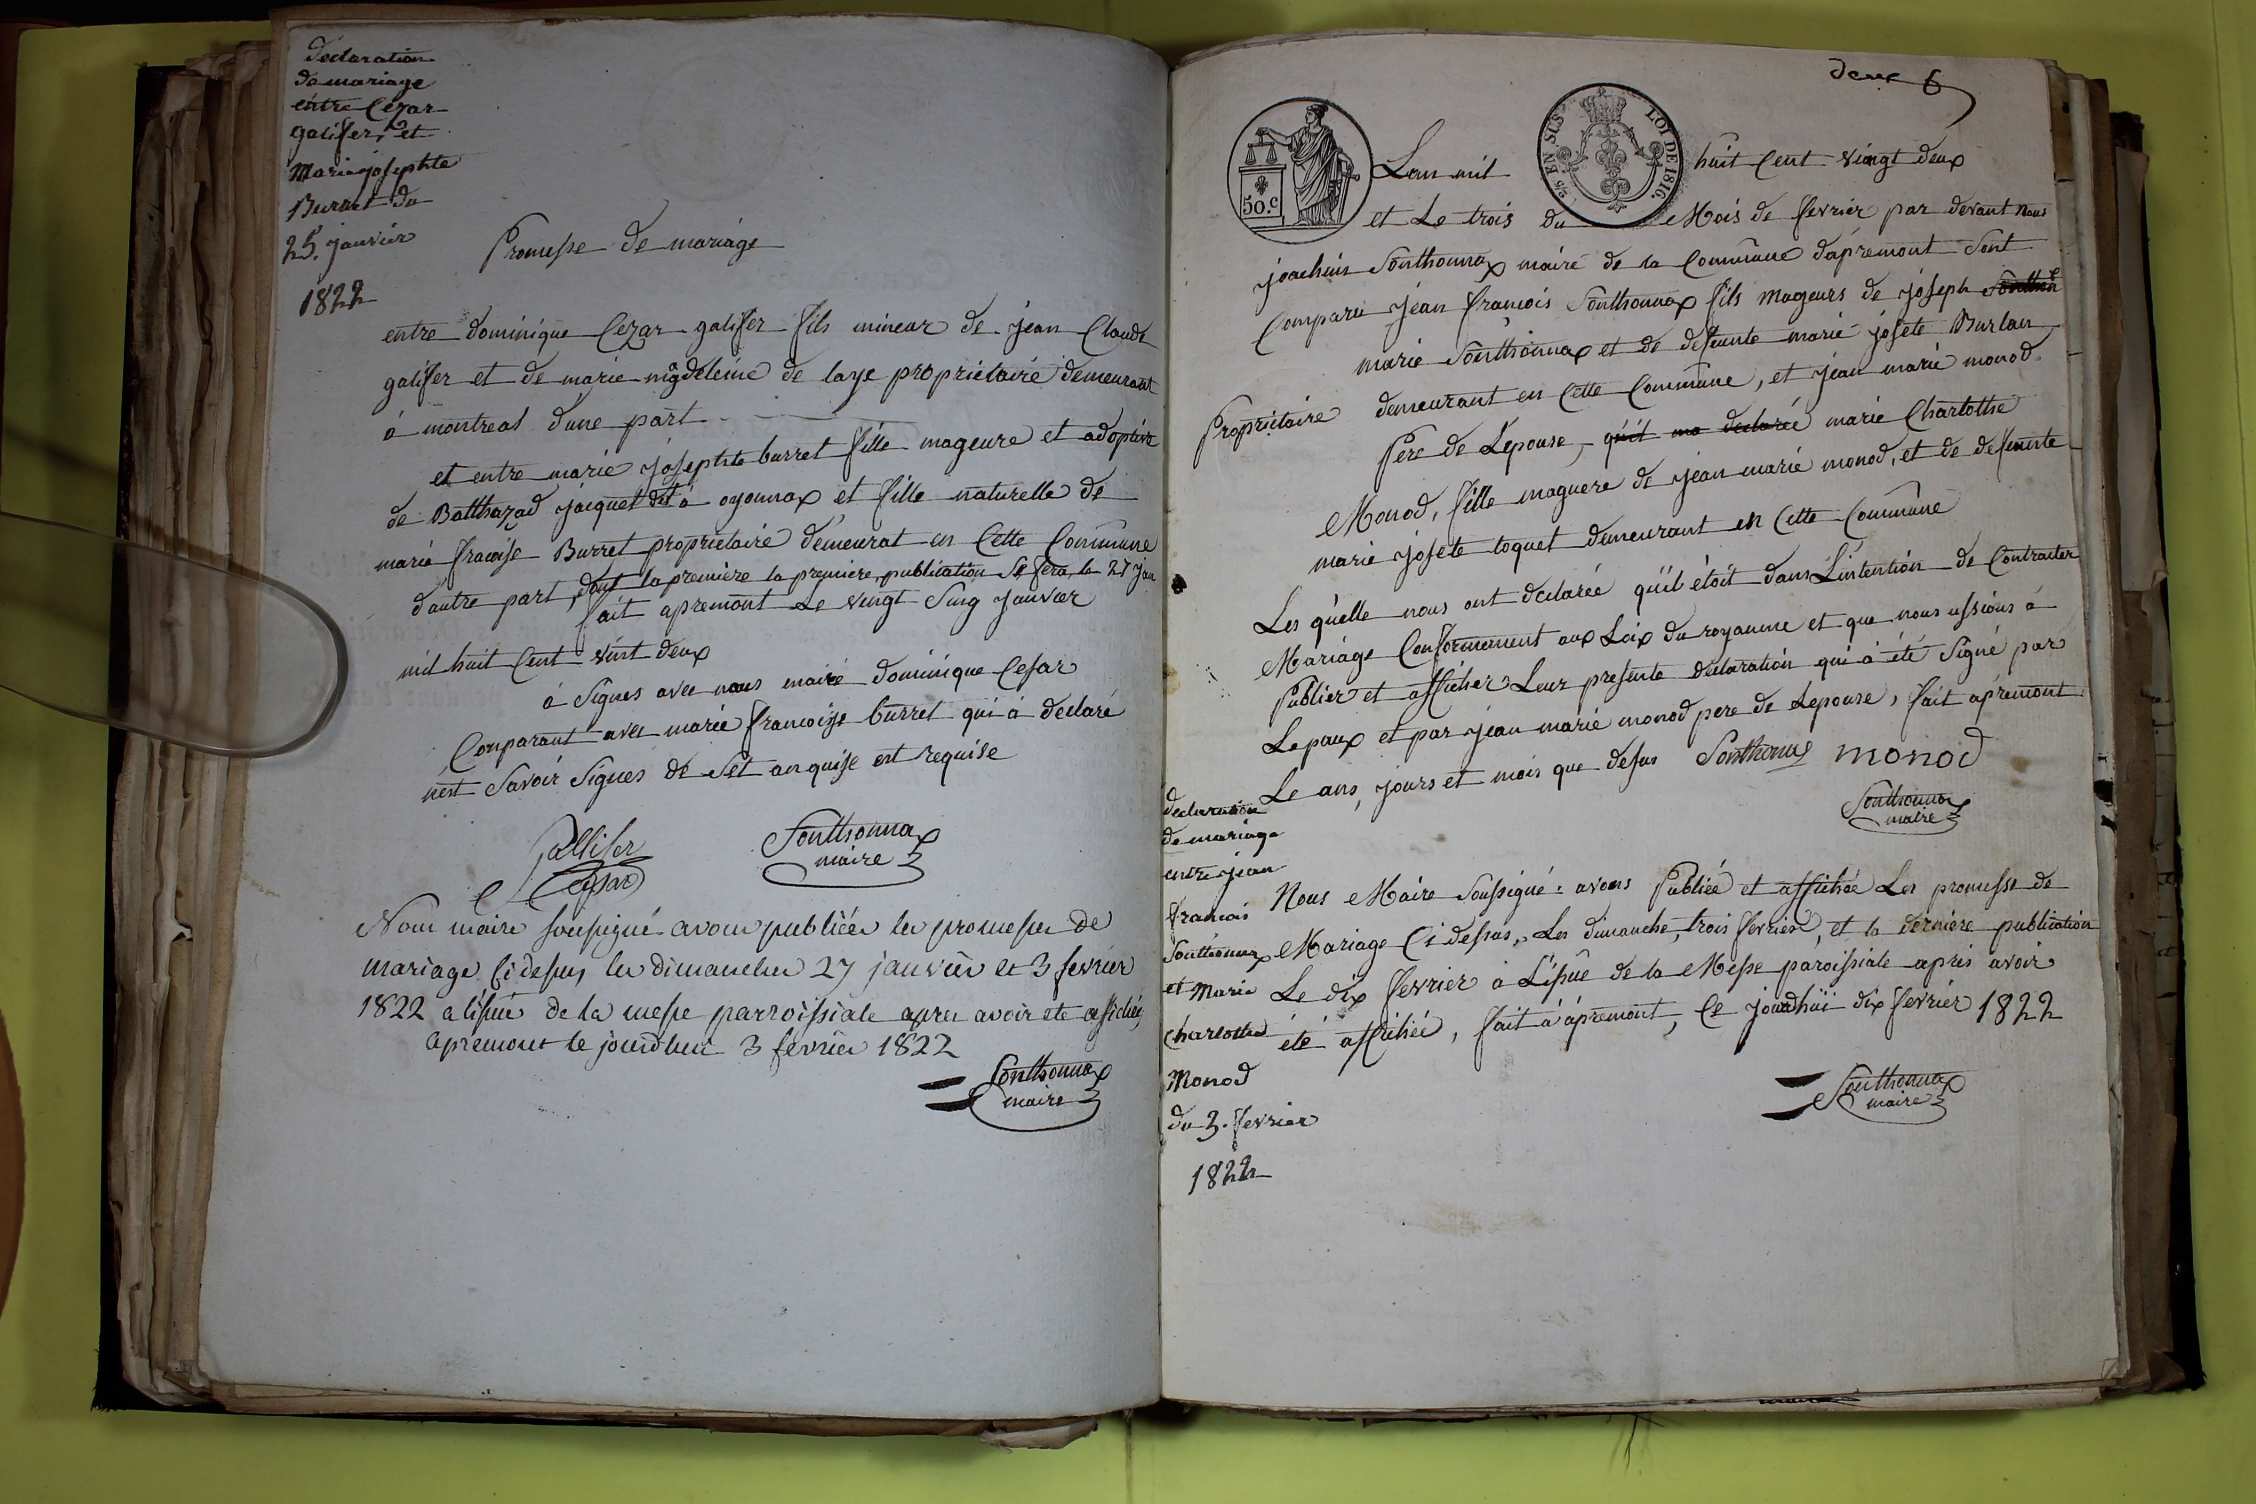 declaration
de mariage
entre Cézar
galifer, et
Marie josephte
Burret du
25. janvier
1822
Promesse de mariage
entre dominique Cézar galifer fils mineur de jean Claude
galifer et de marie magdeleine de laye propriétaire demeurant
à montreal d'une part
et entre marie josephte burret fille mageure et adoptive
de Balthazad jacquet dit à oyonnax et fille naturelle de
marie francoise Burret propriétaire demeurat en Cette Commune
d'autre part, dont la premiere la premiere publication se fera le 27 jan
fait apremont Le vingt Sinq janvier
mil huit Cent vint deux
à Signes avec nous maire dominique Cesar
Comparant avec marie francoise burret qui à declaré
n'est Savoir Signes de Set anquise ent requise
Gallifer
Cesar
Sonthonnax
maire
Nous maire soussigné avons publiées les promesses de
mariage Cidessus les dimanches 27 janvier et 3 fevrier
1822 a l'issue de la messe parroissiale apres avoir ete affichées
apremont le jourdhui 3 fevrier 1822
Sonthonnax
maire
deux 6
50.c
EN SUS
LOI DE 1816.
Lan mil huit Cent vingt deux
et Le trois du Mois de fevrier par devant nous
joachim Sonthonnax maire de la Commune d'apremont Sont
Comparu jean francois Sonthonnax fils mageurs de joseph
marie Sonthonnax et de defeunte marie josete Burlan
Propriétaire demeurant en Cette Commune, et jean marie monod
Pere de L'epouse, qu'il ma declarée marie Charlotthe
Monod, fille maguere de jean marie monod, et de defeunte
marie josete toquet demeurant en Cette Commune
Les qu'elle nous ont declarée qu'il étoit dans L'intention de Contracter
Mariage Conformement aux Loix du royaume et que nous ussions à
Publier et afficher Leur presente declaration qui à été Signé par
Lepaux et par jean marie monod pere de Lepouse, fait apremont
Le ans, jours et mois que desus Sonthonnax monod
Sonthonnax
maire
declaration
de mariage
entre jean
francois
Sonthonnax
et Marie
Charlotthe
Monod
du 3. fevrier
1822
Nous Maire Soussigné: avons Publiée et affichée Les promesse de
Mariage Ci dessus, Les dimanche, trois fevrier, et la derniere publication
Le dix fevrier à L'issue de la Messe paroissiale apris avoir
été affichée, fait à apremont, Ce jourdhui dix fevrier 1822
Sonthonnax
maire